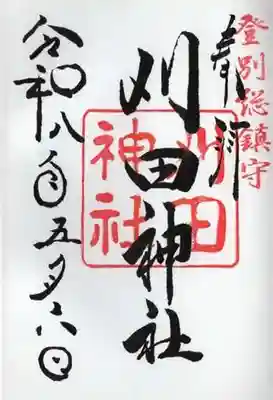 登別総鎮守
奉拝
刈田神社
刈田神社
令和八年五月六日